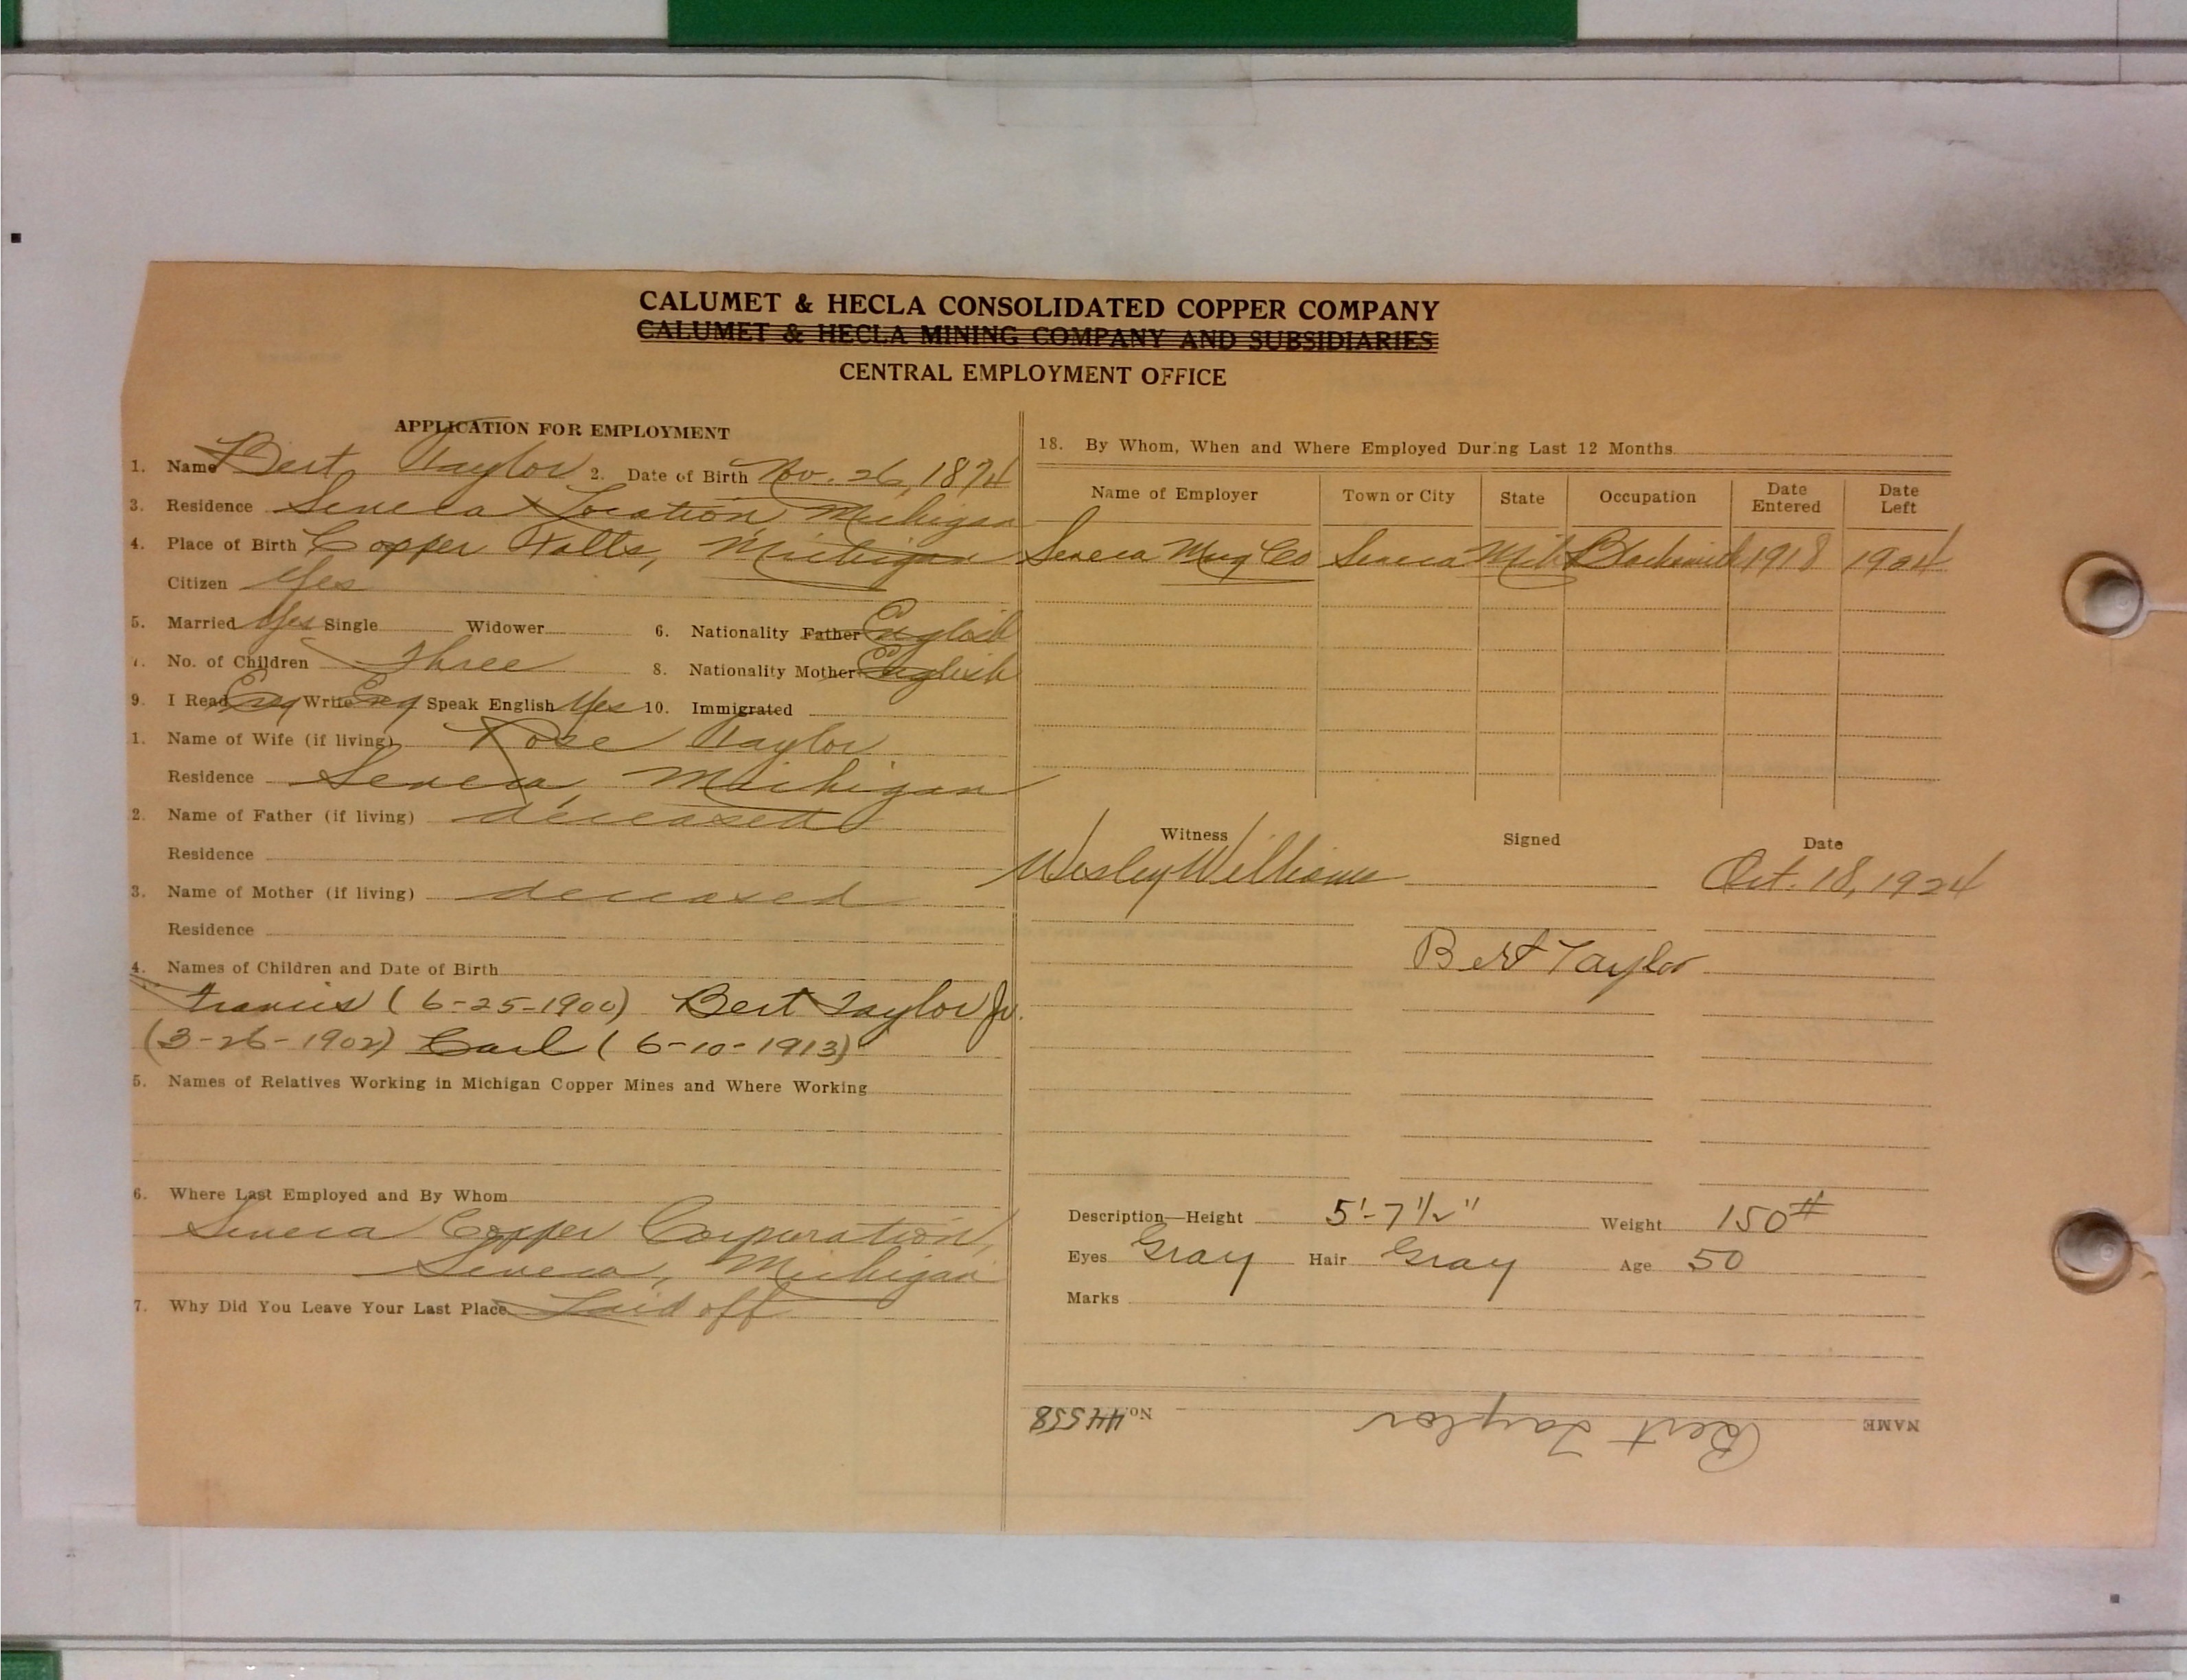 CALUMET & HECLA CONSOLIDATED COPPER COMPANY
CALUMET & HECLA MINING COMPANY AND SUBSIDIARIES
CENTRAL EMPLOYMENT OFFICE
APPLICATION FOR EMPLOYMENT
1. Name Bert Taylor 2. Date of Birth Nov. 26, 1874
3. Residence Seneca Location Michigan
4. Place of Birth Copper Falls, Michigan
Citizen Yes
5. Married Yes Single Widower 6. Nationality Father English
7. No. of Children Three 8. Nationality Mother English
9. I Read Eng Write Eng Speak English Yes 10. Immigrated
1. Name of Wife (if living) Rose Taylor
Residence Seneca, Michigan
2. Name of Father (if living) deceased
Residence
3. Name of Mother (if living) deceased
Residence
4. Names of Children and Date of Birth
Francis (6-25-1900) Bert Taylor Jr.
(3-26-1902) Carl (6-10-1913)
5. Names of Relatives Working in Michigan Copper Mines and Where Working
6. Where Last Employed and By Whom
Seneca Copper Corporation,
Seneca, Michigan
7. Why Did You Leave Your Last Place Laid off
18. By Whom, When and Where Employed During Last 12 Months
Name of Employer Town or City State Occupation Date Entered Date Left
Seneca Mng Co Seneca Mich Blacksmith 1918 1924
Witness Signed Date
Wesley Williams Oct. 18, 1924
Bert Taylor
Description—Height 5'-7 1/2" Weight 150#
Eyes Gray Hair Gray Age 50
Marks
NAME Bert Taylor No. 44558